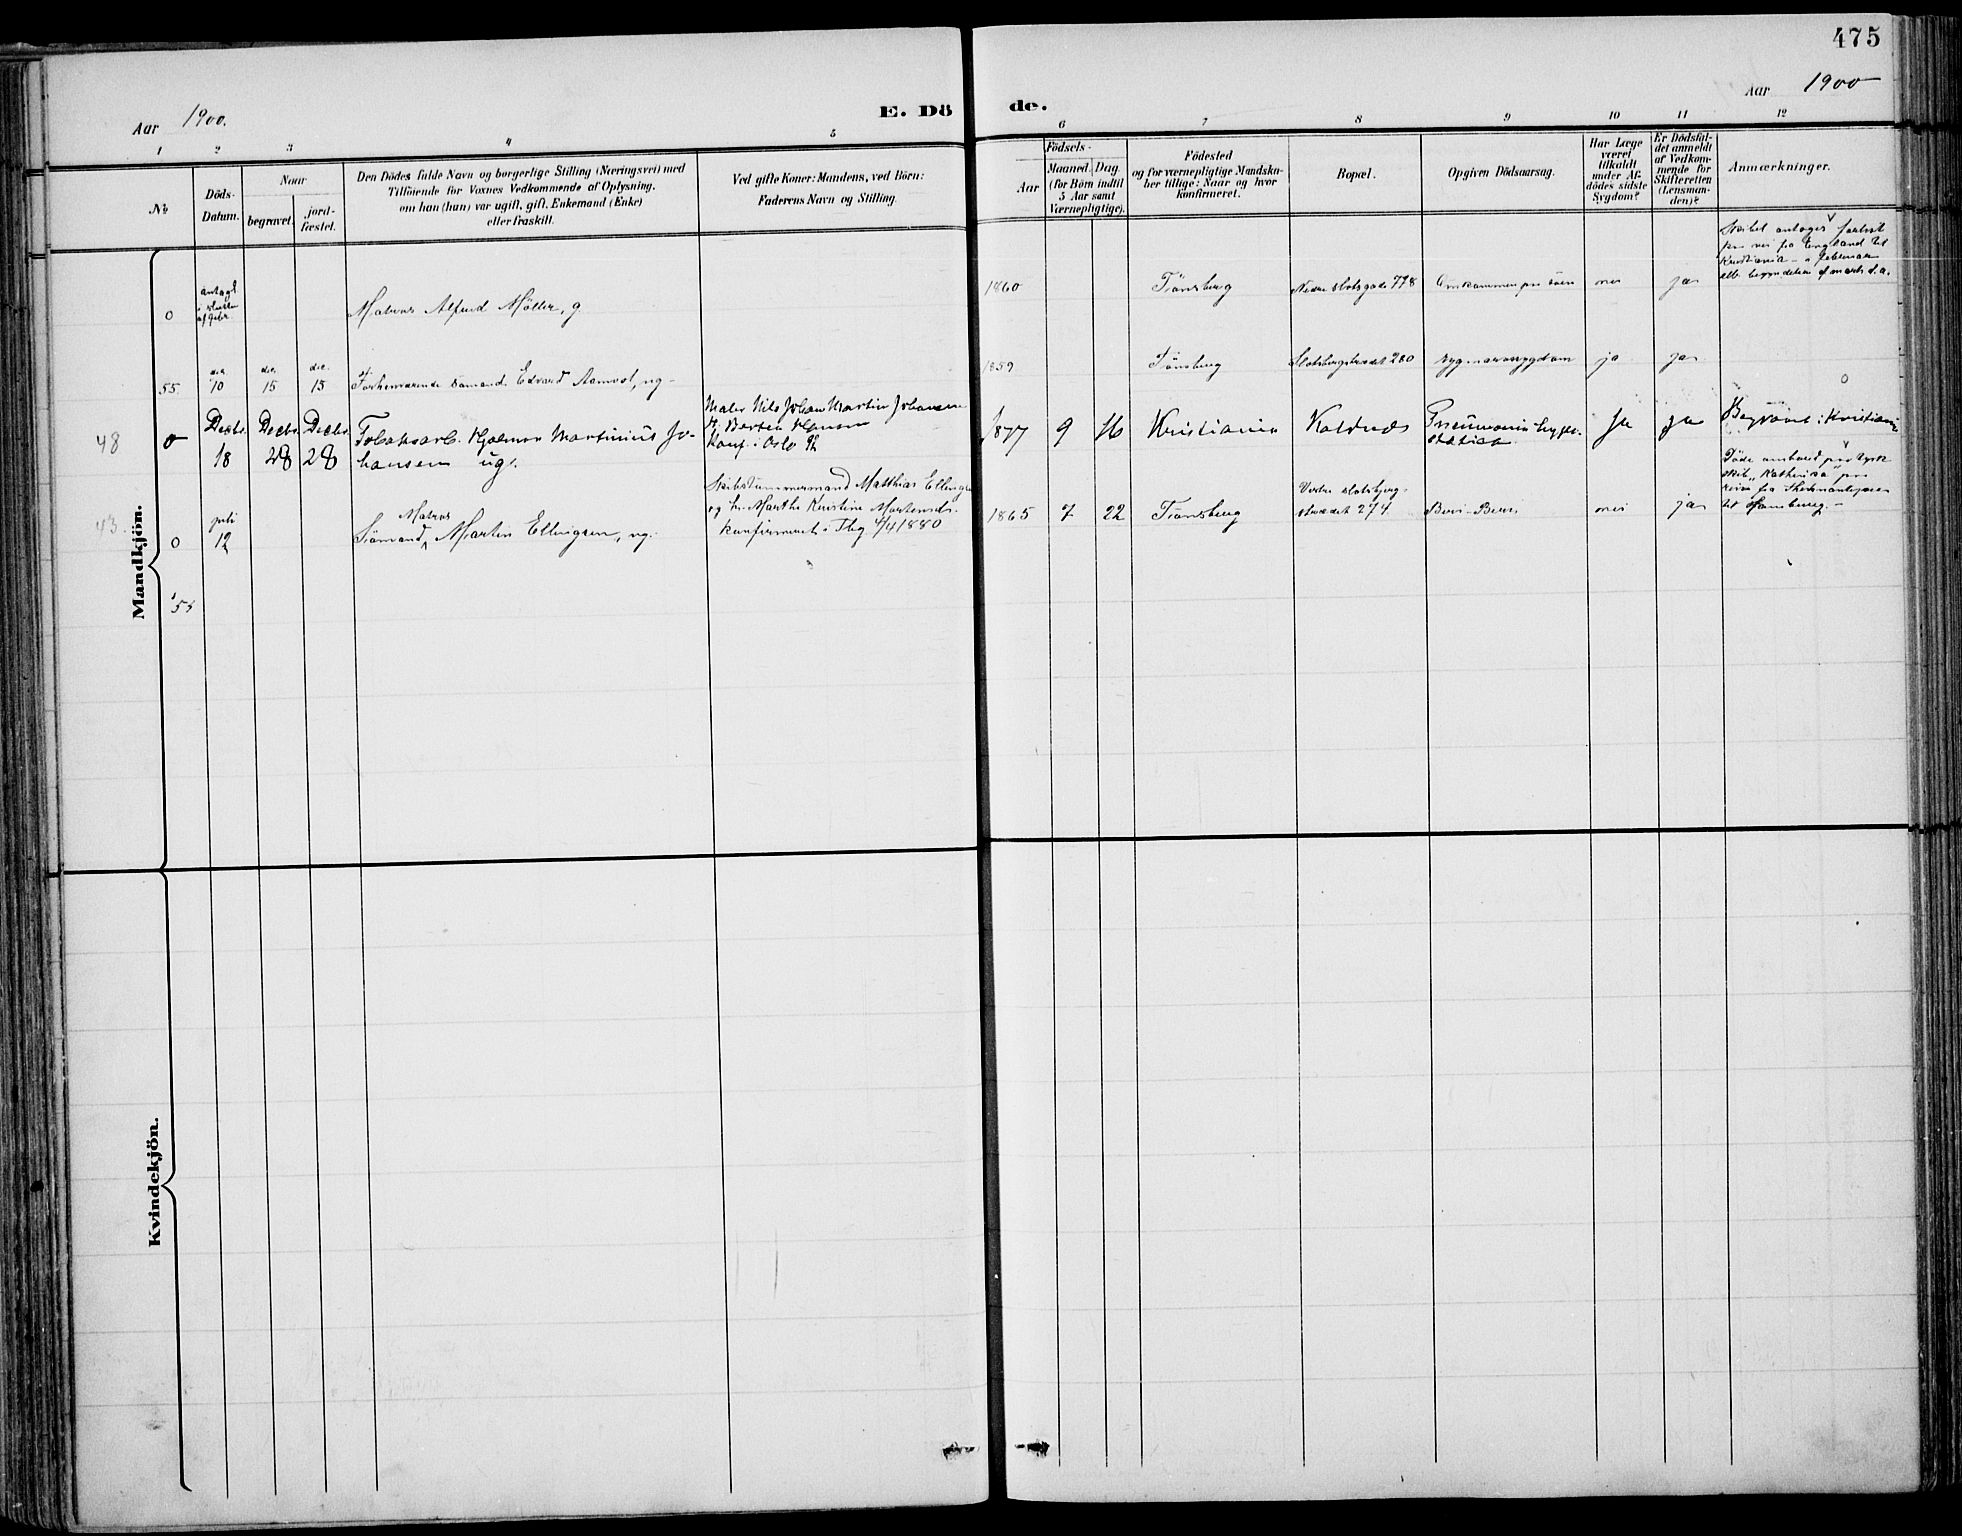 475
Aar 1900.
E. Dö
de.
Aar 1900
1 2 3 4 5
6 7 8 9 10 11 12
No
Döds-
Datum.
Naar
begravet.
jord-
fæstet.
Den Dödes fulde Navn og borgerlige Stilling (Næringsvei) med
Tilföiende for Voxnes Vedkommende af Oplysning,
om han (hun) var ugift, gift, Enkemand (Enke)
eller fraskilt.
Ved gifte Koner: Mandens, ved Börn:
Faderens Navn og Stilling.
Födsels-
Aar
Maaned. Dag.
(for Börn indtil
5 Aar samt
Værnepligtige).
Födested
og for værnepligtige Mandska-
ber tillige: Naar og hvor
konfirmeret.
Bopæl.
Opgiven Dödsaarsag.
Har Læge
været
tilkaldt
under Af-
dödes sidste
Sygdom?
Er Dödsfal-
det anmeldt
af Vedkom-
mende for
Skifteretten
(Lensman-
den)?
Anmærkninger.
Mandkjön.
0
antagl.
i slutten
af febr.
Matros Alfred Möller, g
1860
Tönsberg
Nedre Slotsgade 778
Omkommen paa söen
nei
ja
Skibet antages forlist
paa rei fra England til
Kristiania - i februar
eller begyndelsen af marts d.a.
55
dec. 10
dec. 15
dec. 15
Forhenværende sömand Edvard Aamodt, ug -
1859
Tönsberg
Slotsbergstrædet 280
rygmarvssygdom
ja
ja
0
48
0
Decbr. 18
Decbr. 28
Decbr. 28
Tobaksarb. Hjalmar Martinius Jo-
hansen ug.
Maler Nils Johan Martin Johansen
Konf. i Oslo 92
1877 9 16
Kristiania
Kaldnæs
Pneumonia hypo-
statica
Ja
ja
Begravet i Kristiania
43.
0
juli 12
Matros
Sömand, Martin Ellingsen, ug.
Skibstømmermand Matthias Ellingsen
og h. Marthe Kristine Mortensd.
konfirmeret i Tbg 4/4 1880
1865 7 22
Tönsberg
Vestre Slotsbjerg-
strædet 274
Beri-Beri
nei
ja
Döde ombord paa tysk
skib "Katharina" paa
til Hamburg. -
55
Kvindekjön.